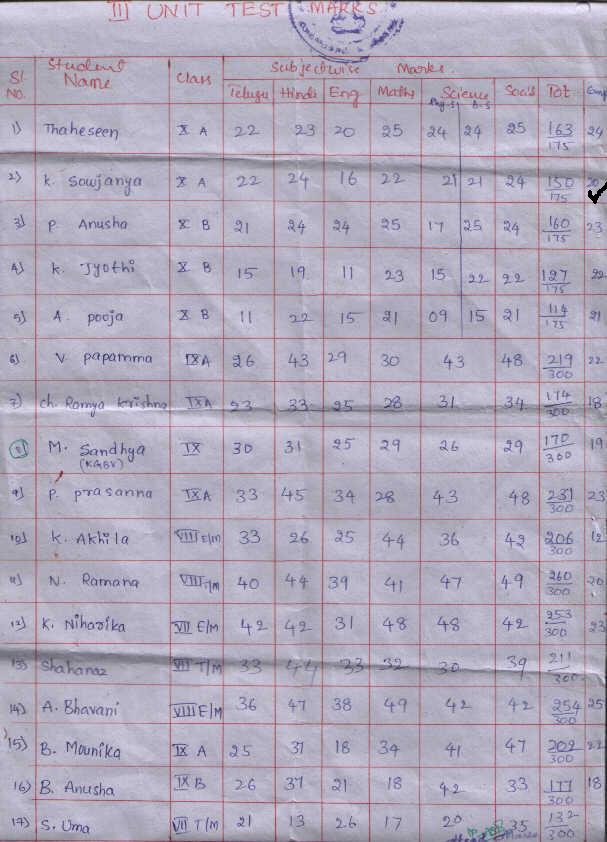 III UNIT TEST MARKS
Sl. NO. Student Name Class Subjectwise Marks.
Telugu Hindi Eng Maths Science Soc's Tot
Phy-S B-S
1) Thaheseen X A 22 23 20 25 24 24 25 163/175 24
2) K. Sowjanya X A 22 24 16 22 21 21 24 150/175 20
3) P. Anusha X B 21 24 24 25 17 25 24 160/175 23
4) K. Jyothi X B 15 19 11 23 15 22 22 127/175 22
5) A. pooja X B 11 22 15 21 09 15 21 114/175 21
6) V. papamma IX A 26 43 29 30 43 48 219/300 22
7) ch. Ramya Krishna IX A 23 33 25 28 31 34 174/300 18
8) M. Sandhya (KGBV) IX 30 31 25 29 26 29 170/300 19
9) P. prasanna IX A 33 45 34 28 43 48 231/300 23
10) K. Akhila VIII E/M 33 26 25 44 36 42 206/300 12
11) N. Ramana VIII T/M 40 44 39 41 47 49 260/300 20
12) K. Niharika VII E/M 42 42 31 48 48 42 253/300 23
13) Shahanaz VII T/M 33 44 33 32 30 39 211/300
14) A. Bhavani VIII E/M 36 47 38 49 42 42 254/300 25
15) B. Mounika IX A 25 37 18 34 41 47 202/300 22
16) B. Anusha IX B 26 37 21 18 42 33 177/300 18
17) S. Uma VII T/M 21 13 26 17 20 35 132/300